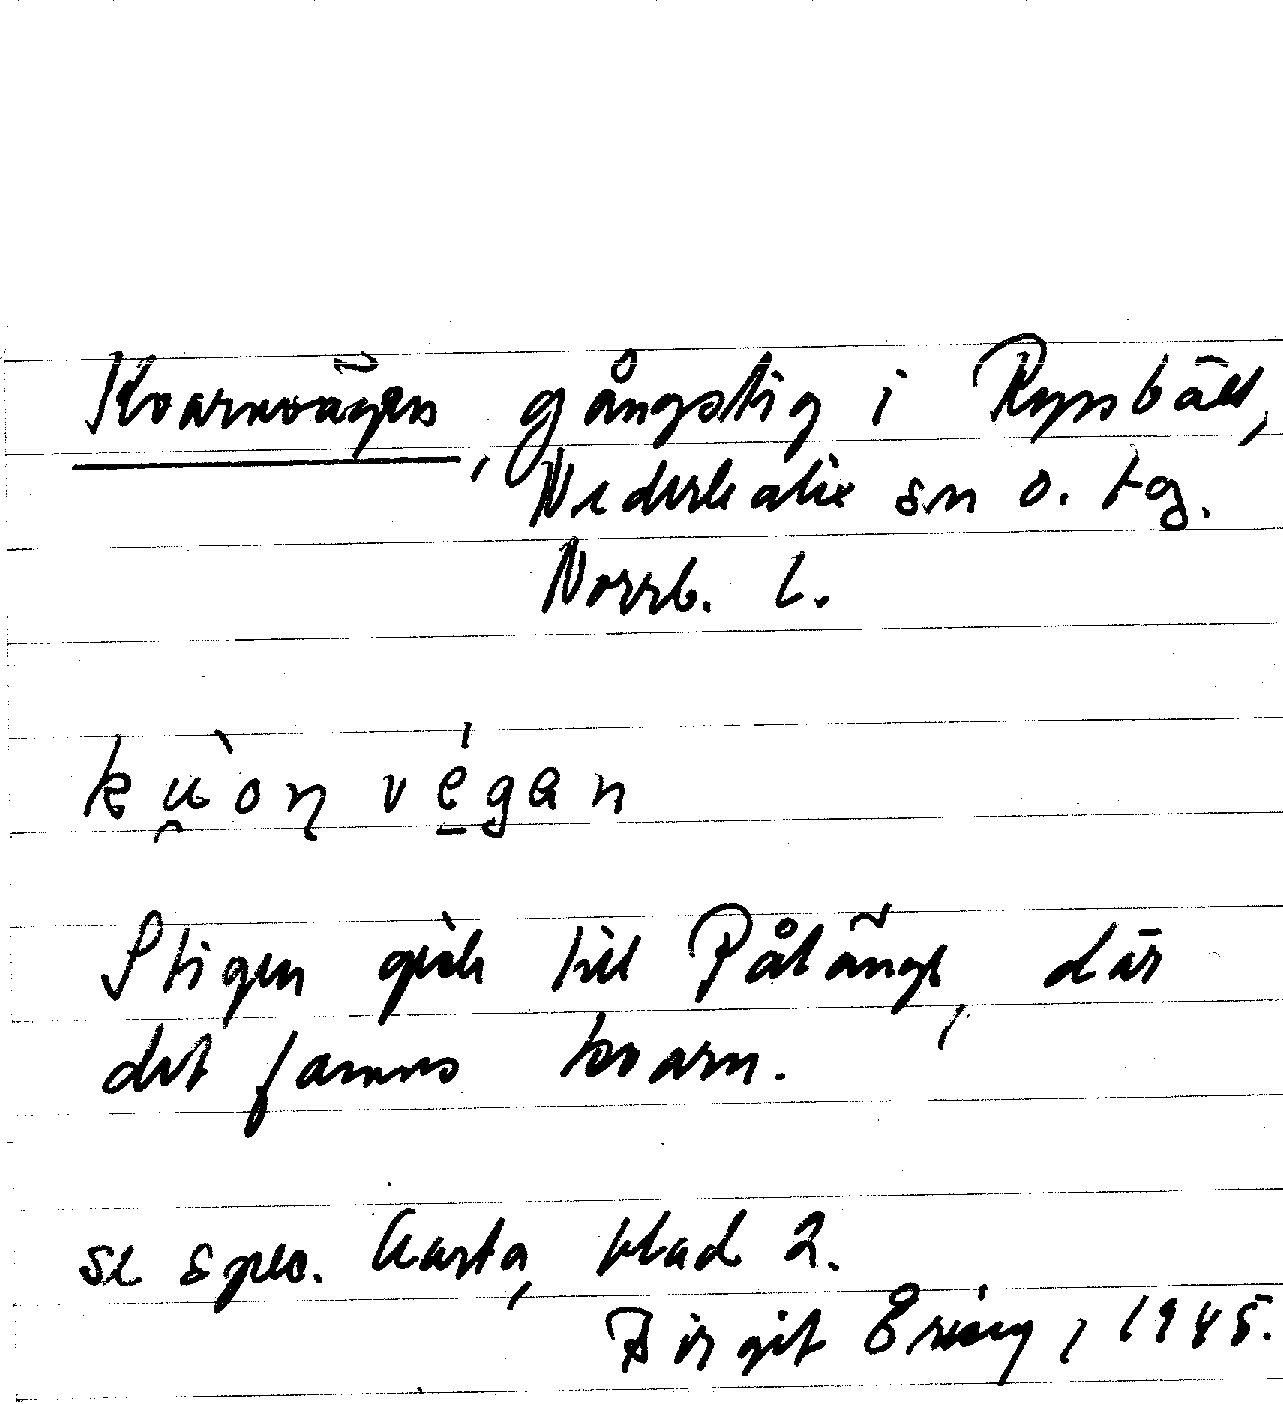 Kvarnvägen, gångstig i Ryssbält,
Nederkalix sn o. tg.
Norrb. l.
kù̯oɳ vé̠gan
Stigen gick till Pålänge, där
det fanns kvarn.
se spec. karta, blad 2.
Birgit 1945.